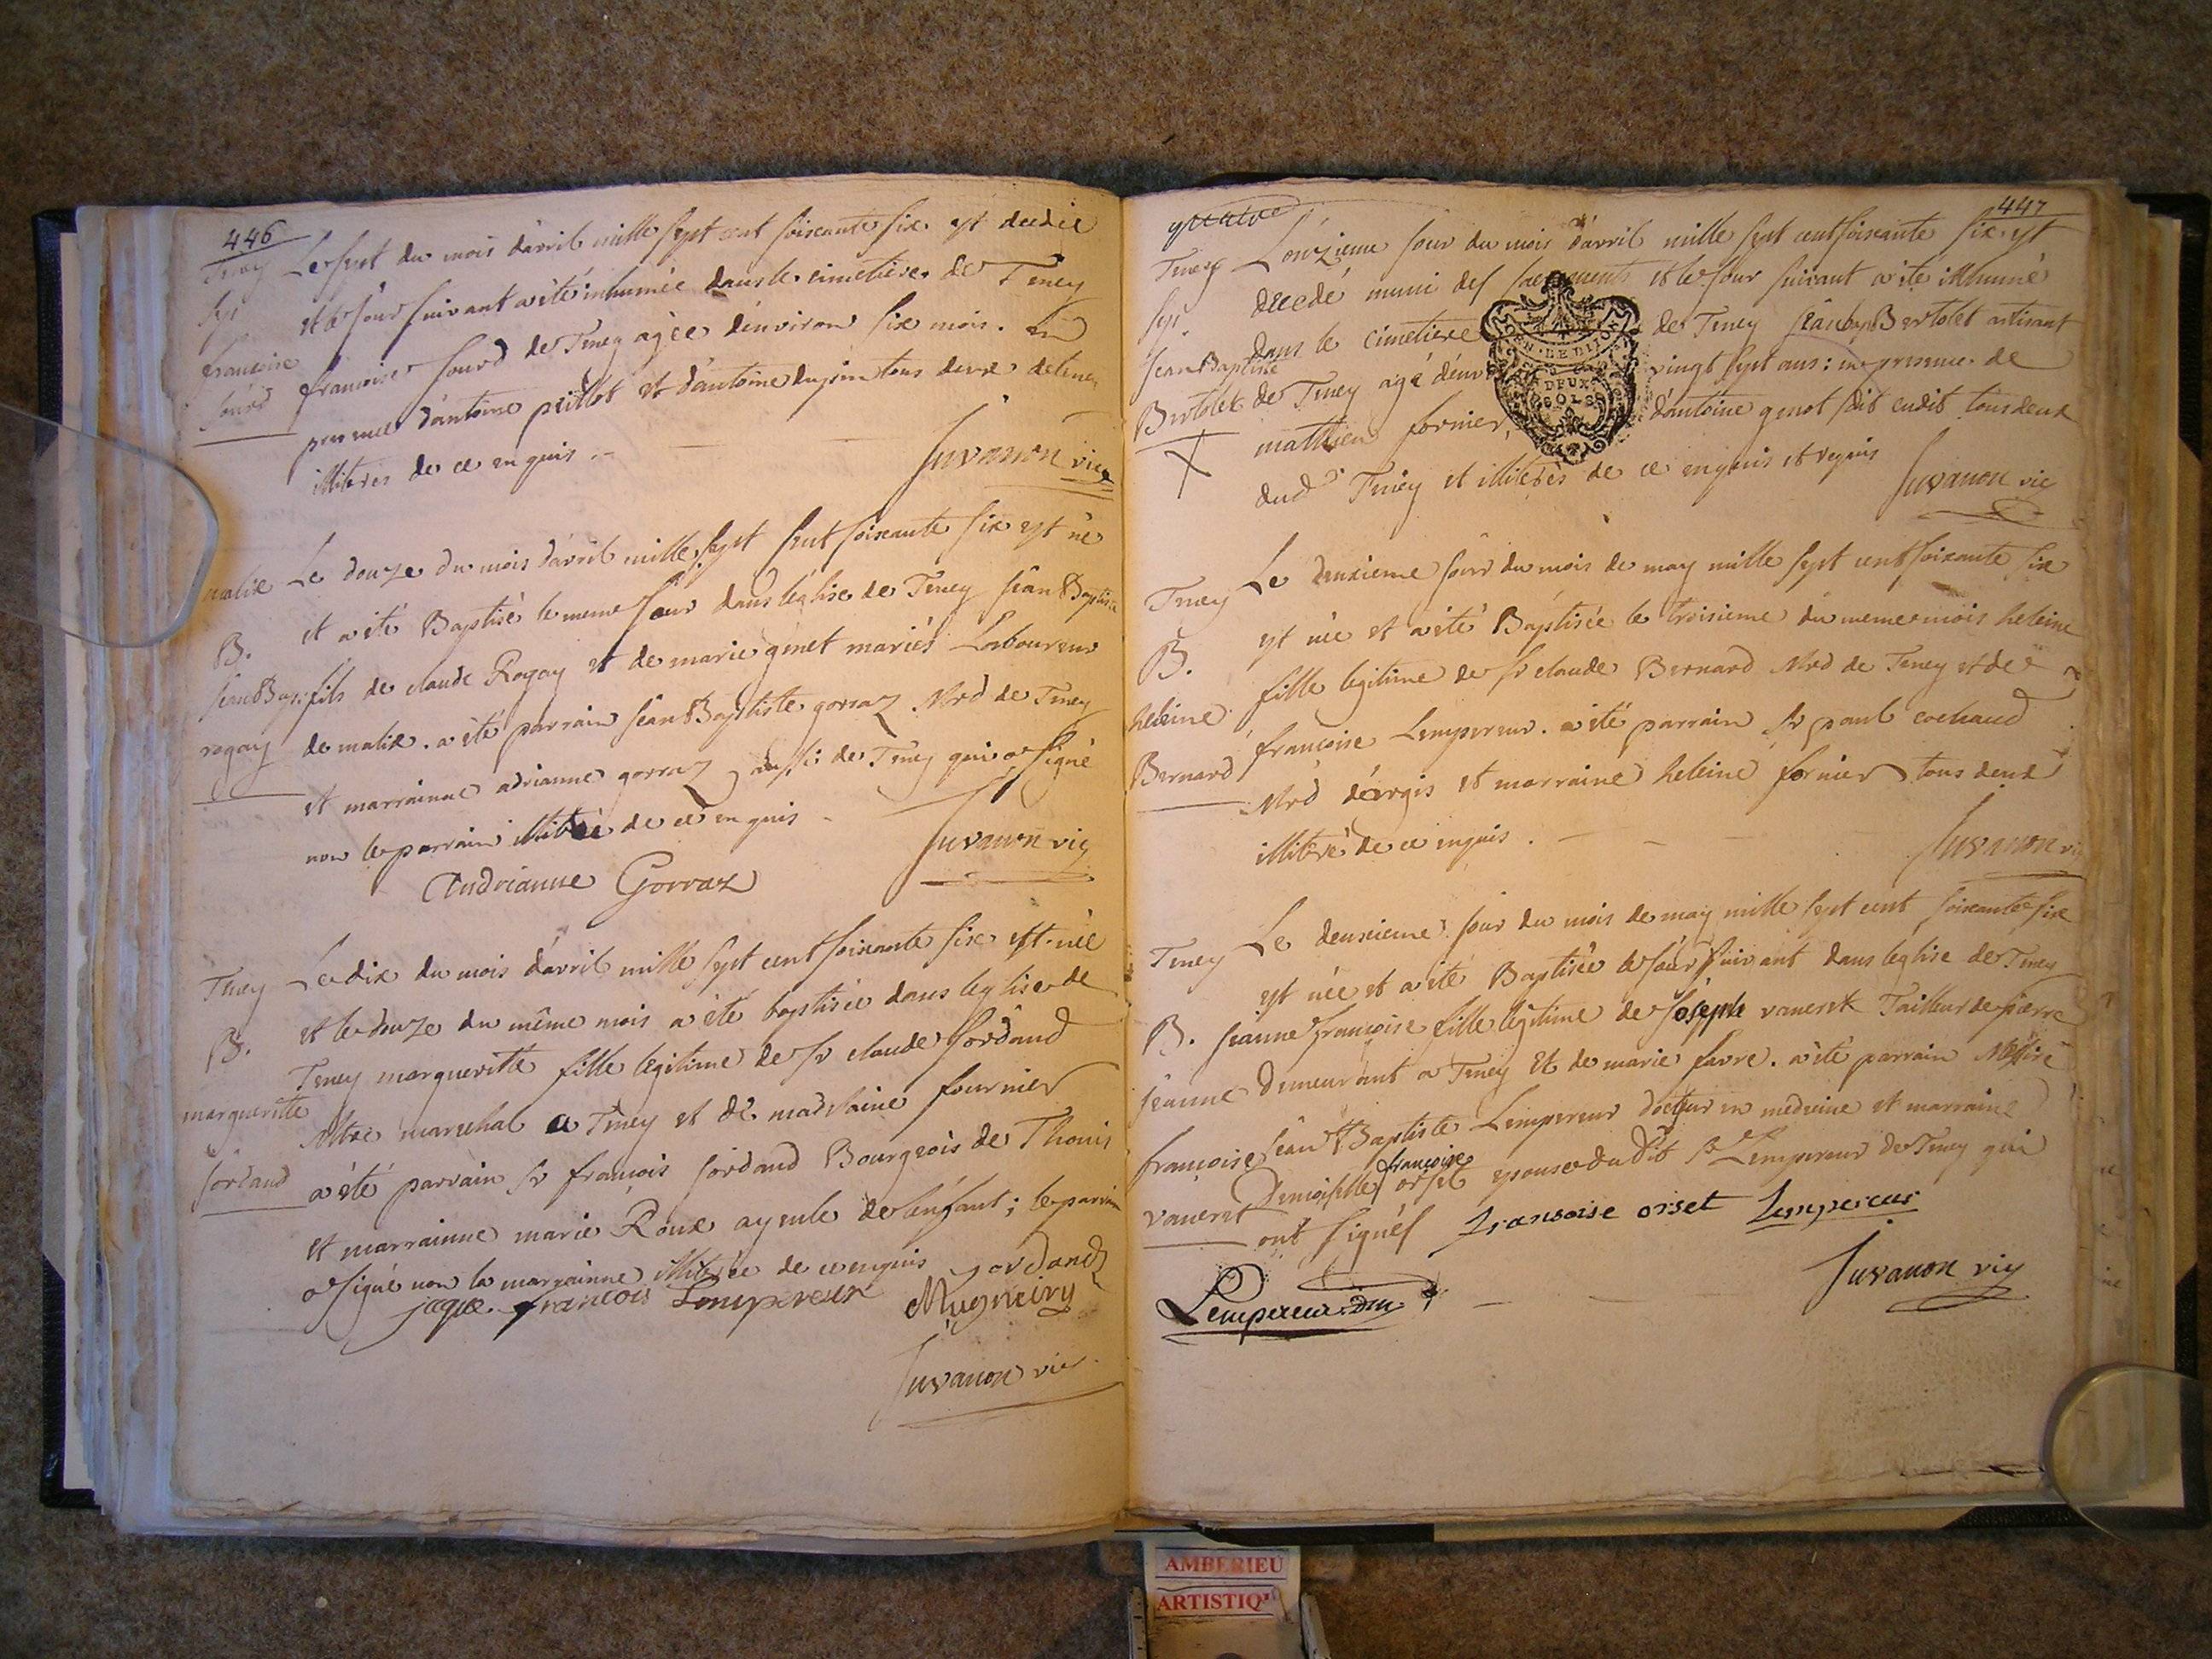 446
Teney
Le sept du mois d'avril mille sept cent soixante six est decedée
Sep.
et le jour suivant a été inhumée dans le cimetiere de Teney
francoise
jourd
francoise jourd de Teney agée d'environ six mois. en
presence d'antoine peillot et d'antoine dujoin tous deux de teney
illiteres de ce enquis
Juvanon vic
malix
Le douze du mois d'avril mille sept sent soixante six est né
B.
et a eté Baptisé le meme jour dans l'église de Teney jean Baptiste
jean Bap:
fils de claude Rogay et de marie ginet mariés Laboureur
rogay
de malix. a été parrain jean Baptiste gorraz Mrd de Teney
et marrainne adrianne gorraz aussi de Teney qui a signé
non le parrain illiteré de ce enquis
Juvanon vic
Andrianne Gorraz
Teney
Le dix du mois d'avril mille sept cent soixante six est née
B.
et le douze du même mois a été baptisée dans leglise de
Teney margueritte fille legitime de Sr claude jordand
margueritte
Mtre marechal a Teney et de madelaine fournier
jordand
a été parrain Sr francois jordand Bourgeois de Thouis
et marrainne marie Roux ayeule de l'enfant; le parrain
a signé non la marrainne illiterée de ce enquis jordand
jaque francois Lempereur Mugneiry
Juvanon vic
447
Teney
L'onzieme jour du mois d'avril mille sept cent soixante six est
Sep.
decedé muni des sacrements et le jour suivant a été inhumé
jean Baptiste
dans le cimetiere de Teney jean bap Bertolet artisant
DEUX
SOLS
Bertolet
de Teney agé d'env vingt sept ans: en presence de
X
matthieu fornier, d'antoine genot dit cudit tous deux
dud Teney et illiterés de ce enquis et requis
Juvanon vic
Teney
Le deuxieme jour du mois de may mille sept cent soixante six
B.
est née et a été Baptisée le troisieme du meme mois heleine
heleine
fille legitime de Sr claude Bernard Mrd de Teney et de
Bernard
francoise Lempereur. a été parrain Sr paul cochaud
Mrd d'argis et marraine heleine fornier tous deux
illiteré de ce enquis.
Juvanon vic
Teney
Le deuxieme jour du mois de may mille sept cent soixante six
est née et a été Baptisée le jour suivant dans l'église de Teney
B.
jeanne françoise fille legitime de Joseph vaneret Tailleur de pierre
jeanne
demeurant a Teney et de marie favre. a été parrain Messire
françoise
jean Baptiste Lempereur docteur en medecine et marraine
francoise
Demoiselle orset epouse du dit Sr Lempereur de Teney qui
vaneret
ont signés fransoise orset Lempereur
Juvanon vic
Lempereur dm
AMBERIEU
ARTISTIQ